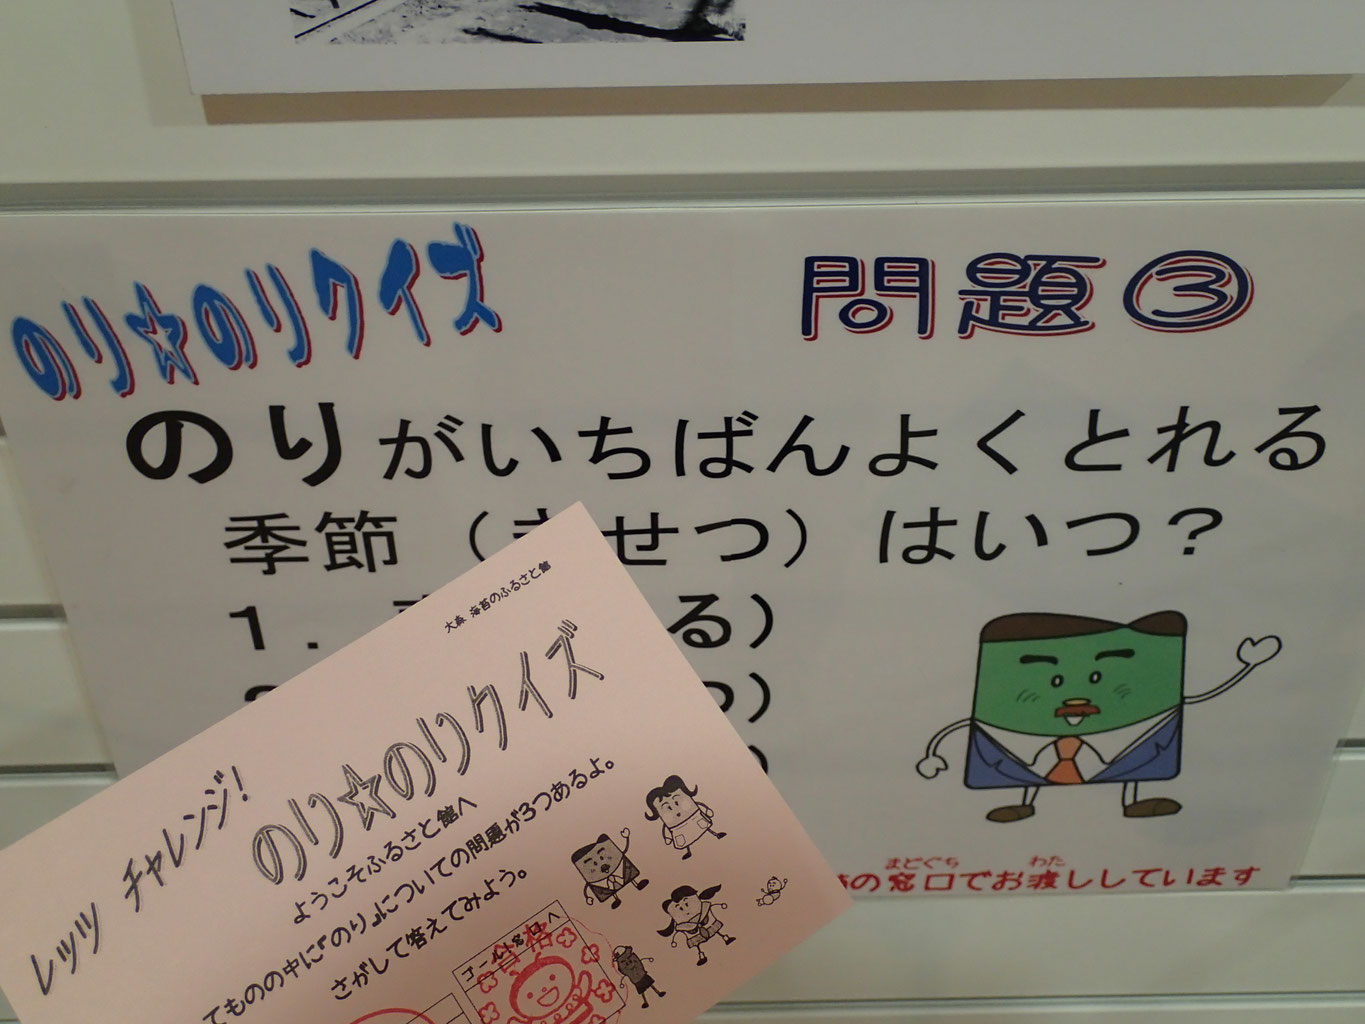 のり☆のりクイズ
問題③
のりがいちばんよくとれる
季節（きせつ）はいつ？
1.
る）
つ）
）
まどぐち わた
の窓口でお渡ししています
大森 海苔のふるさと館
レッツ チャレンジ！
のり☆のりクイズ
ようこそふるさと館へ
てものの中に『のり』についての問題が3つあるよ。
さがして答えてみよう。
合格